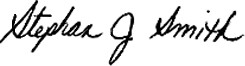 Stephan J Smith